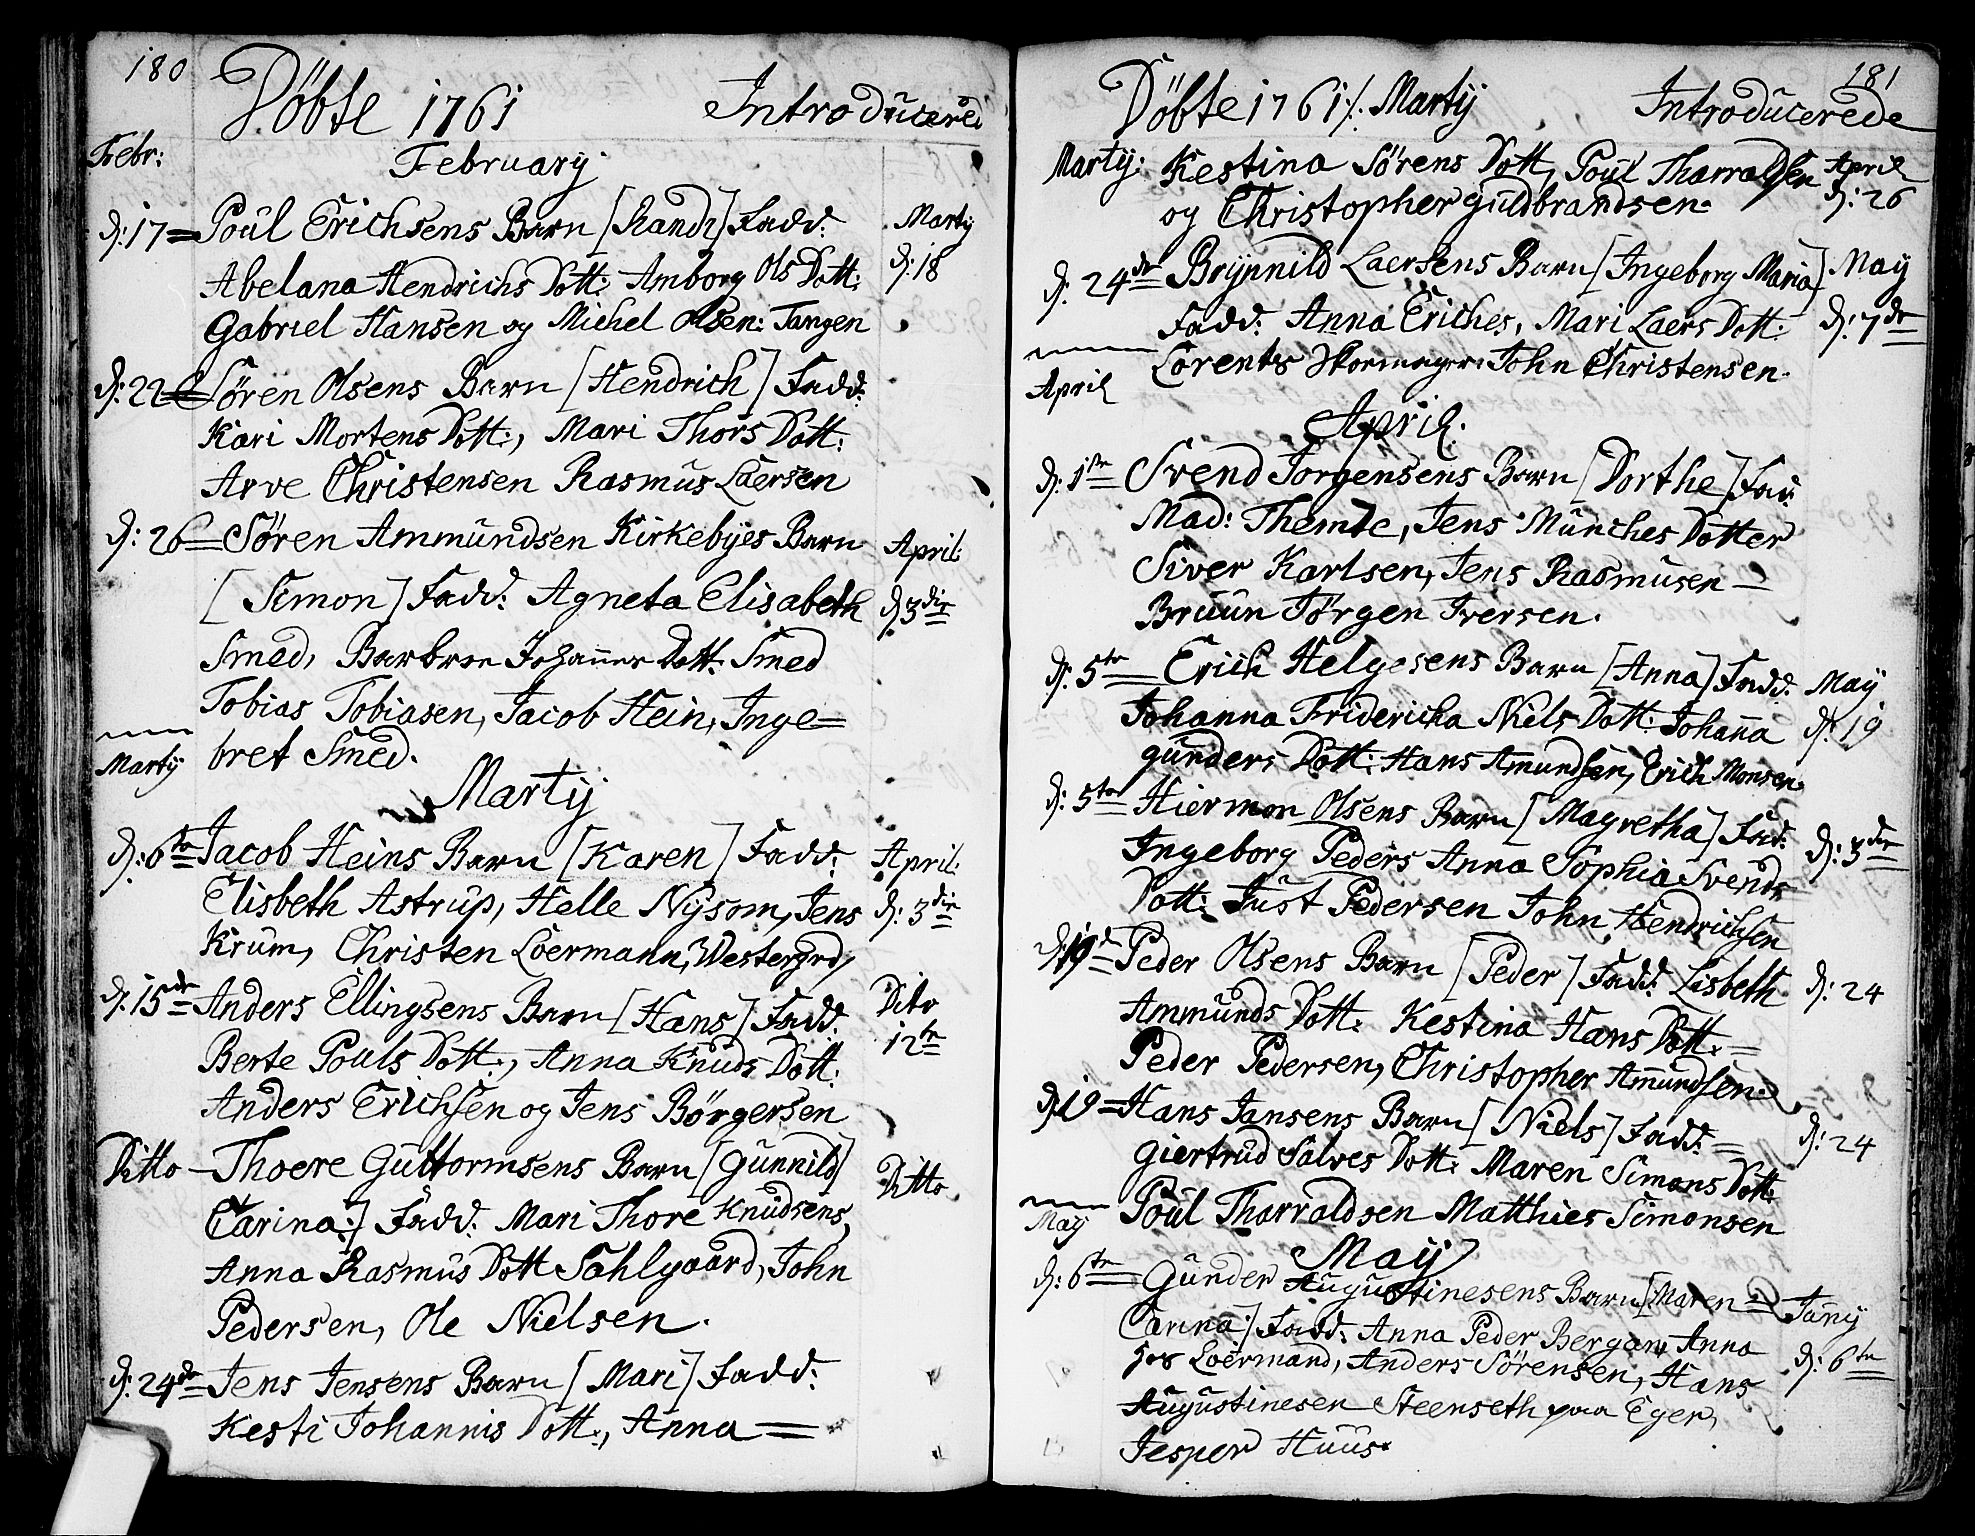 180
Döbte 1761 Introducered
Febr:
February
d: 17 = Poul Erichsens Barn [Randi] Fadd: Marty
Abelana Hendrichs Dott: Amborg Ols Dott: d: 18
Gabriel Hansen og Michel Olsen: Tangen
d: 22 = Sören Olsens Barn [Hendrich] Fadd:
Kari Mortens Dott:, Mari Thors Dott:
Arve Christensen Rasmus Laersen
d: 26 = Sören Ammundsen Kirkebyes Barn April:
[Simon] Fadd: Agneta Elisabeth d: 3die
Smed, Barbroe Johannes Dott: Smed
Tobias Tobiasen, Jacob Hein, Inge=
bret Smed.
Marty
Marty
d: 6te Jacob Heins Barn [Karen] Fadd: April:
Elisbeth Astrup, Helle Nysom, Jens d: 3die
Krum, Christen Loermann, Westergrd,
d: 15de Anders Ellingsens Barn [Hans] Fadd. Dito
Berte Pouls Dott:, Anna Knuds Dott: 12te
Anders Erichsen og Jens Börgersen
Ditto - Thoere Guttormsens Barn [Gunnild Ditto
Carina:] Fadd: Mari Thore Knudsens,
Anna Rasmus Dott Sahlgaard, John
Pedersen, Ole Nielsen.
d: 24de Jens Jensens Barn [Mari] Fadd:
Kesti Johannis Dott:, Anna =
181
Döbte 1761 /: Marty Introducerede
Marty: Kestina Sörens Dott, Poul Tharraldsen April
og Christopher Guldbrandsen. d: 26
d: 24de Brynnild Laersens Barn [Ingeborg Maria] May
Fadd: Anna Eriches, Mari Laers Dott: d: 7de
Lorents John Christensen.
April
April.
d: 1te Svend Jorgensens Barn [Dorthe] Fad:
Mad: Themte, Jens Münches Dotter
Siver Karlsen, Jens Rasmusen -
Bruun Jörgen Iversen.
d: 5te = Erich Helgesens Barn [Anna] Fadd. May
Johanna Fridericha Niels Dott: Johanna d: 19
Gunders Dott: Hans Amundsen, Erich Monsen.
d: 5te Hiermon Olsens Barn [Magretha] Fad:
Ingeborg Peders Anna Sophia Svends d: 3die
Dott: Just Pedersen John Hendrichsen
d: 19de Peder Olsens Barn [Peder] Fadd: Lisbeth
Ammunds Dott: Kestina Hans Dott = d: 24
Peder Pedersen, Christopher Amundsen.
d: 19 = Hans Jansens Barn [Niels] Fadd: =
Giertrud Salves Dott: Maren Simons Dott: d: 24
Poul Tharraldsen Matthies Simonsen
May
May
d: 6te = Gunder Augustinesens Barn [Maren = Jany
Carina] Fadd: Anna Peder Bergan, Anna
Loermand, Anders Sörensen, Hans d: 6te
Augustinesen Steenseth paa Eger,
Jesper Huus.